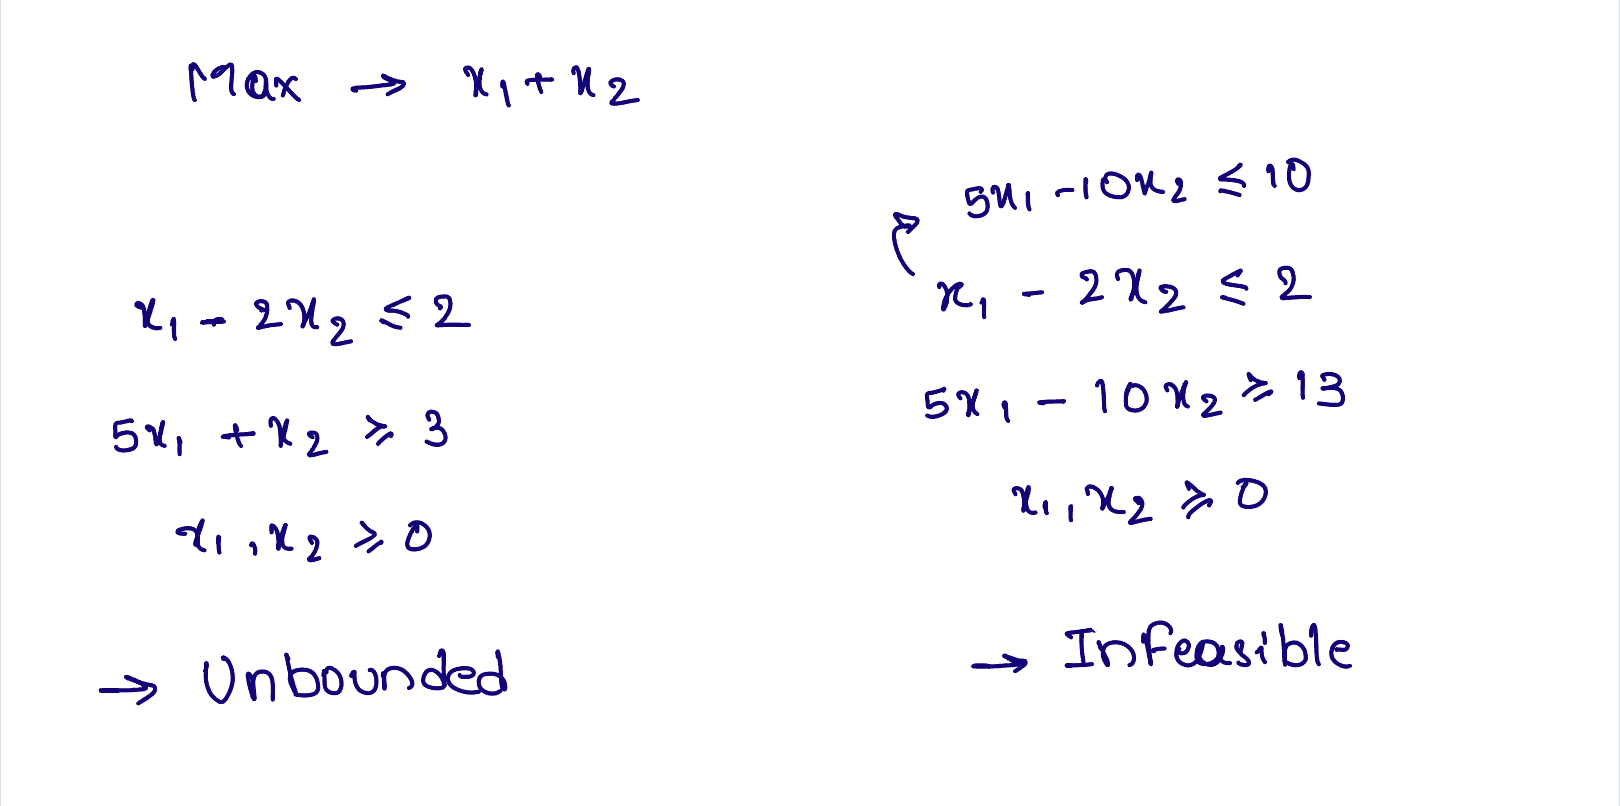 Max → x₁ + x₂
x₁ - 2x₂ ≤ 2
5x₁ + x₂ ≥ 3
x₁, x₂ ≥ 0
→ Unbounded
5x₁ - 10x₂ ≤ 10
x₁ - 2x₂ ≤ 2
5x₁ - 10x₂ ≥ 13
x₁, x₂ ≥ 0
→ Infeasible